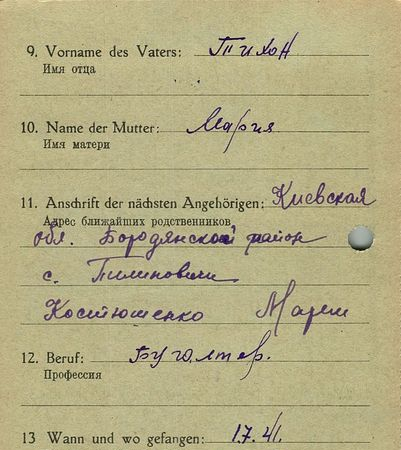 9. Vorname des Vaters: Тихон
Имя отца
10. Name der Mutter: Мария
Имя матери
11. Anschrift der nächsten Angehörigen: Киевская
Адрес ближайших родственников
обл. Бородянской район
с.
Костюшенко Марии
12. Beruf: Буголтер.
Профессия
13 Wann und wo gefangen: 1.7.41.